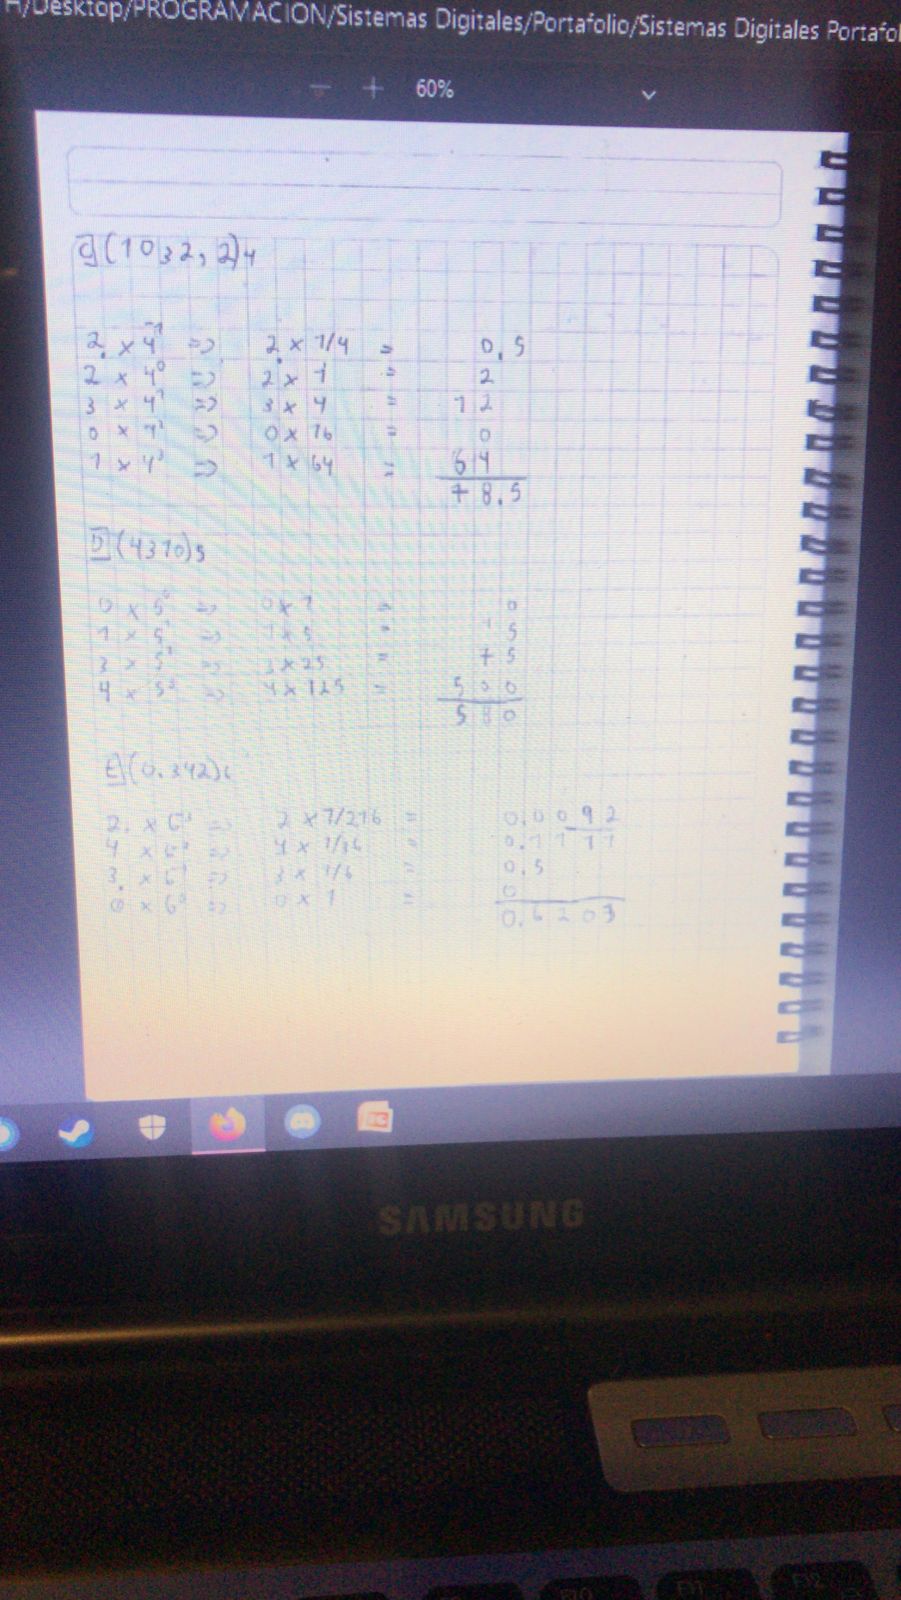 H/Desktop/PROGRAMACION/Sistemas Digitales/Portafolio/Sistemas Digitales Portafol
− + 60%
C) (1032,2)4
2. × 4⁻¹ => 2. × 1/4 = 0,5
2 × 4⁰ => 2 × 1 = 2
3 × 4¹ => 3 × 4 = 12
0 × 4² => 0 × 16 = 0
1 × 4³ => 1 × 64 = 64
78.5
D) (4310)5
0 × 5⁰ => 0 × 1 = 0
1 × 5¹ => 1 × 5 = 5
3 × 5² => 3 × 25 = 75
4 × 5³ => 4 × 125 = 500
580
E) (0.342)6
2. × 6⁻³ => 2 × 1/216 = 0.0092
4 × 6⁻² => 4 × 1/36 = 0.1111
3. × 6⁻¹ => 3 × 1/6 = 0.5
0 × 6⁰ => 0 × 1 = 0
0.6203
SAMSUNG
F10
F11
F12